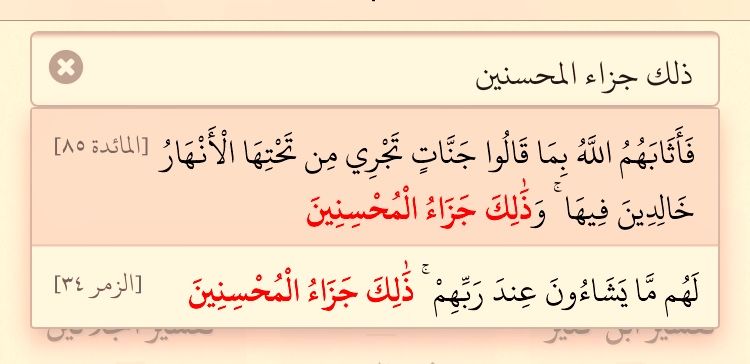 ذلك جزاء المحسنين
فَأَثَابَهُمُ اللَّهُ بِمَا قَالُوا جَنَّاتٍ تَجْرِي مِن تَحْتِهَا الْأَنْهَارُ [المائدة ٨٥]
خَالِدِينَ فِيهَا ۚ وَذَٰلِكَ جَزَاءُ الْمُحْسِنِينَ
لَهُم مَّا يَشَاءُونَ عِندَ رَبِّهِمْ ۚ ذَٰلِكَ جَزَاءُ الْمُحْسِنِينَ [الزمر ٣٤]